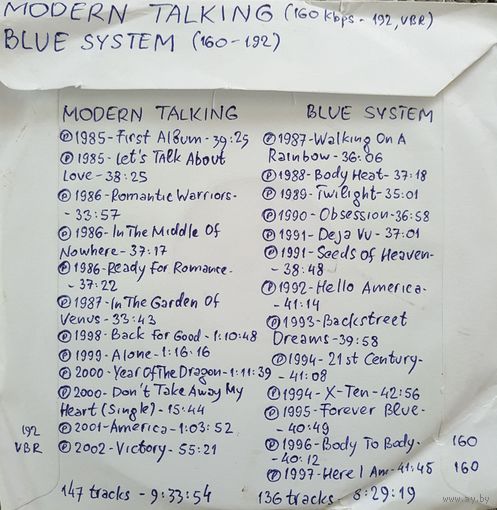 MODERN TALKING (160 kbps - 192, VBR)
BLUE SYSTEM (160-192)
MODERN TALKING
Ⓟ 1985-First Album-39:25
Ⓟ 1985-Let's Talk About
Love-38:25
Ⓟ 1986-Romantic Warriors-
-33:57
Ⓟ 1986-In The Middle Of
Nowhere-37:17
Ⓟ 1986-Ready for Romance-
-37:22
Ⓟ 1987-In The Garden Of
Venus-33:43
Ⓟ 1998-Back for Good-1:10:48
Ⓟ 1999-Alone-1:16:16
Ⓟ 2000-Year Of The Dragon-1:11:39
Ⓟ 2000-Don't Take Away My
Heart (Single)-15:44
192 Ⓟ 2001-America-1:03:52
VBR Ⓟ 2002-Victory-55:21
147 tracks-9:33:54
BLUE SYSTEM
Ⓟ 1987-Walking On A
Rainbow-36:06
Ⓟ 1988-Body Heat-37:18
Ⓟ 1989-Twilight-35:01
Ⓟ 1990-Obsession-36:58
Ⓟ 1991-Deja Vu-37:01
Ⓟ 1991-Seeds of Heaven-
-38:48
Ⓟ 1992-Hello America-
-41:14
Ⓟ 1993-Backstreet
Dreams-39:58
Ⓟ 1994-21st Century-
-41:08
Ⓟ 1994-X-Ten-42:56
Ⓟ 1995-Forever Blue-
-40:49
Ⓟ 1996-Body To Body- 160
-40:12
Ⓟ 1997-Here I Am-41:45 160
136 tracks-8:29:19
www.ay.by